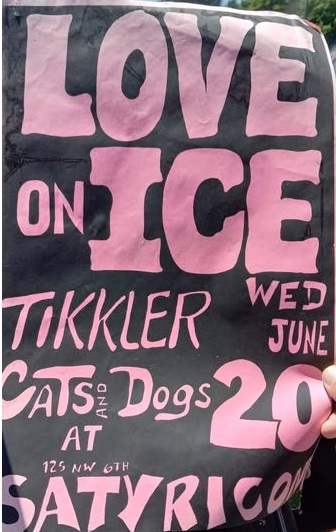 LOVE
ON ICE
TIKKLER
WED
JUNE
20
CATS AND Dogs
AT
125 NW 6TH
SATYRICON